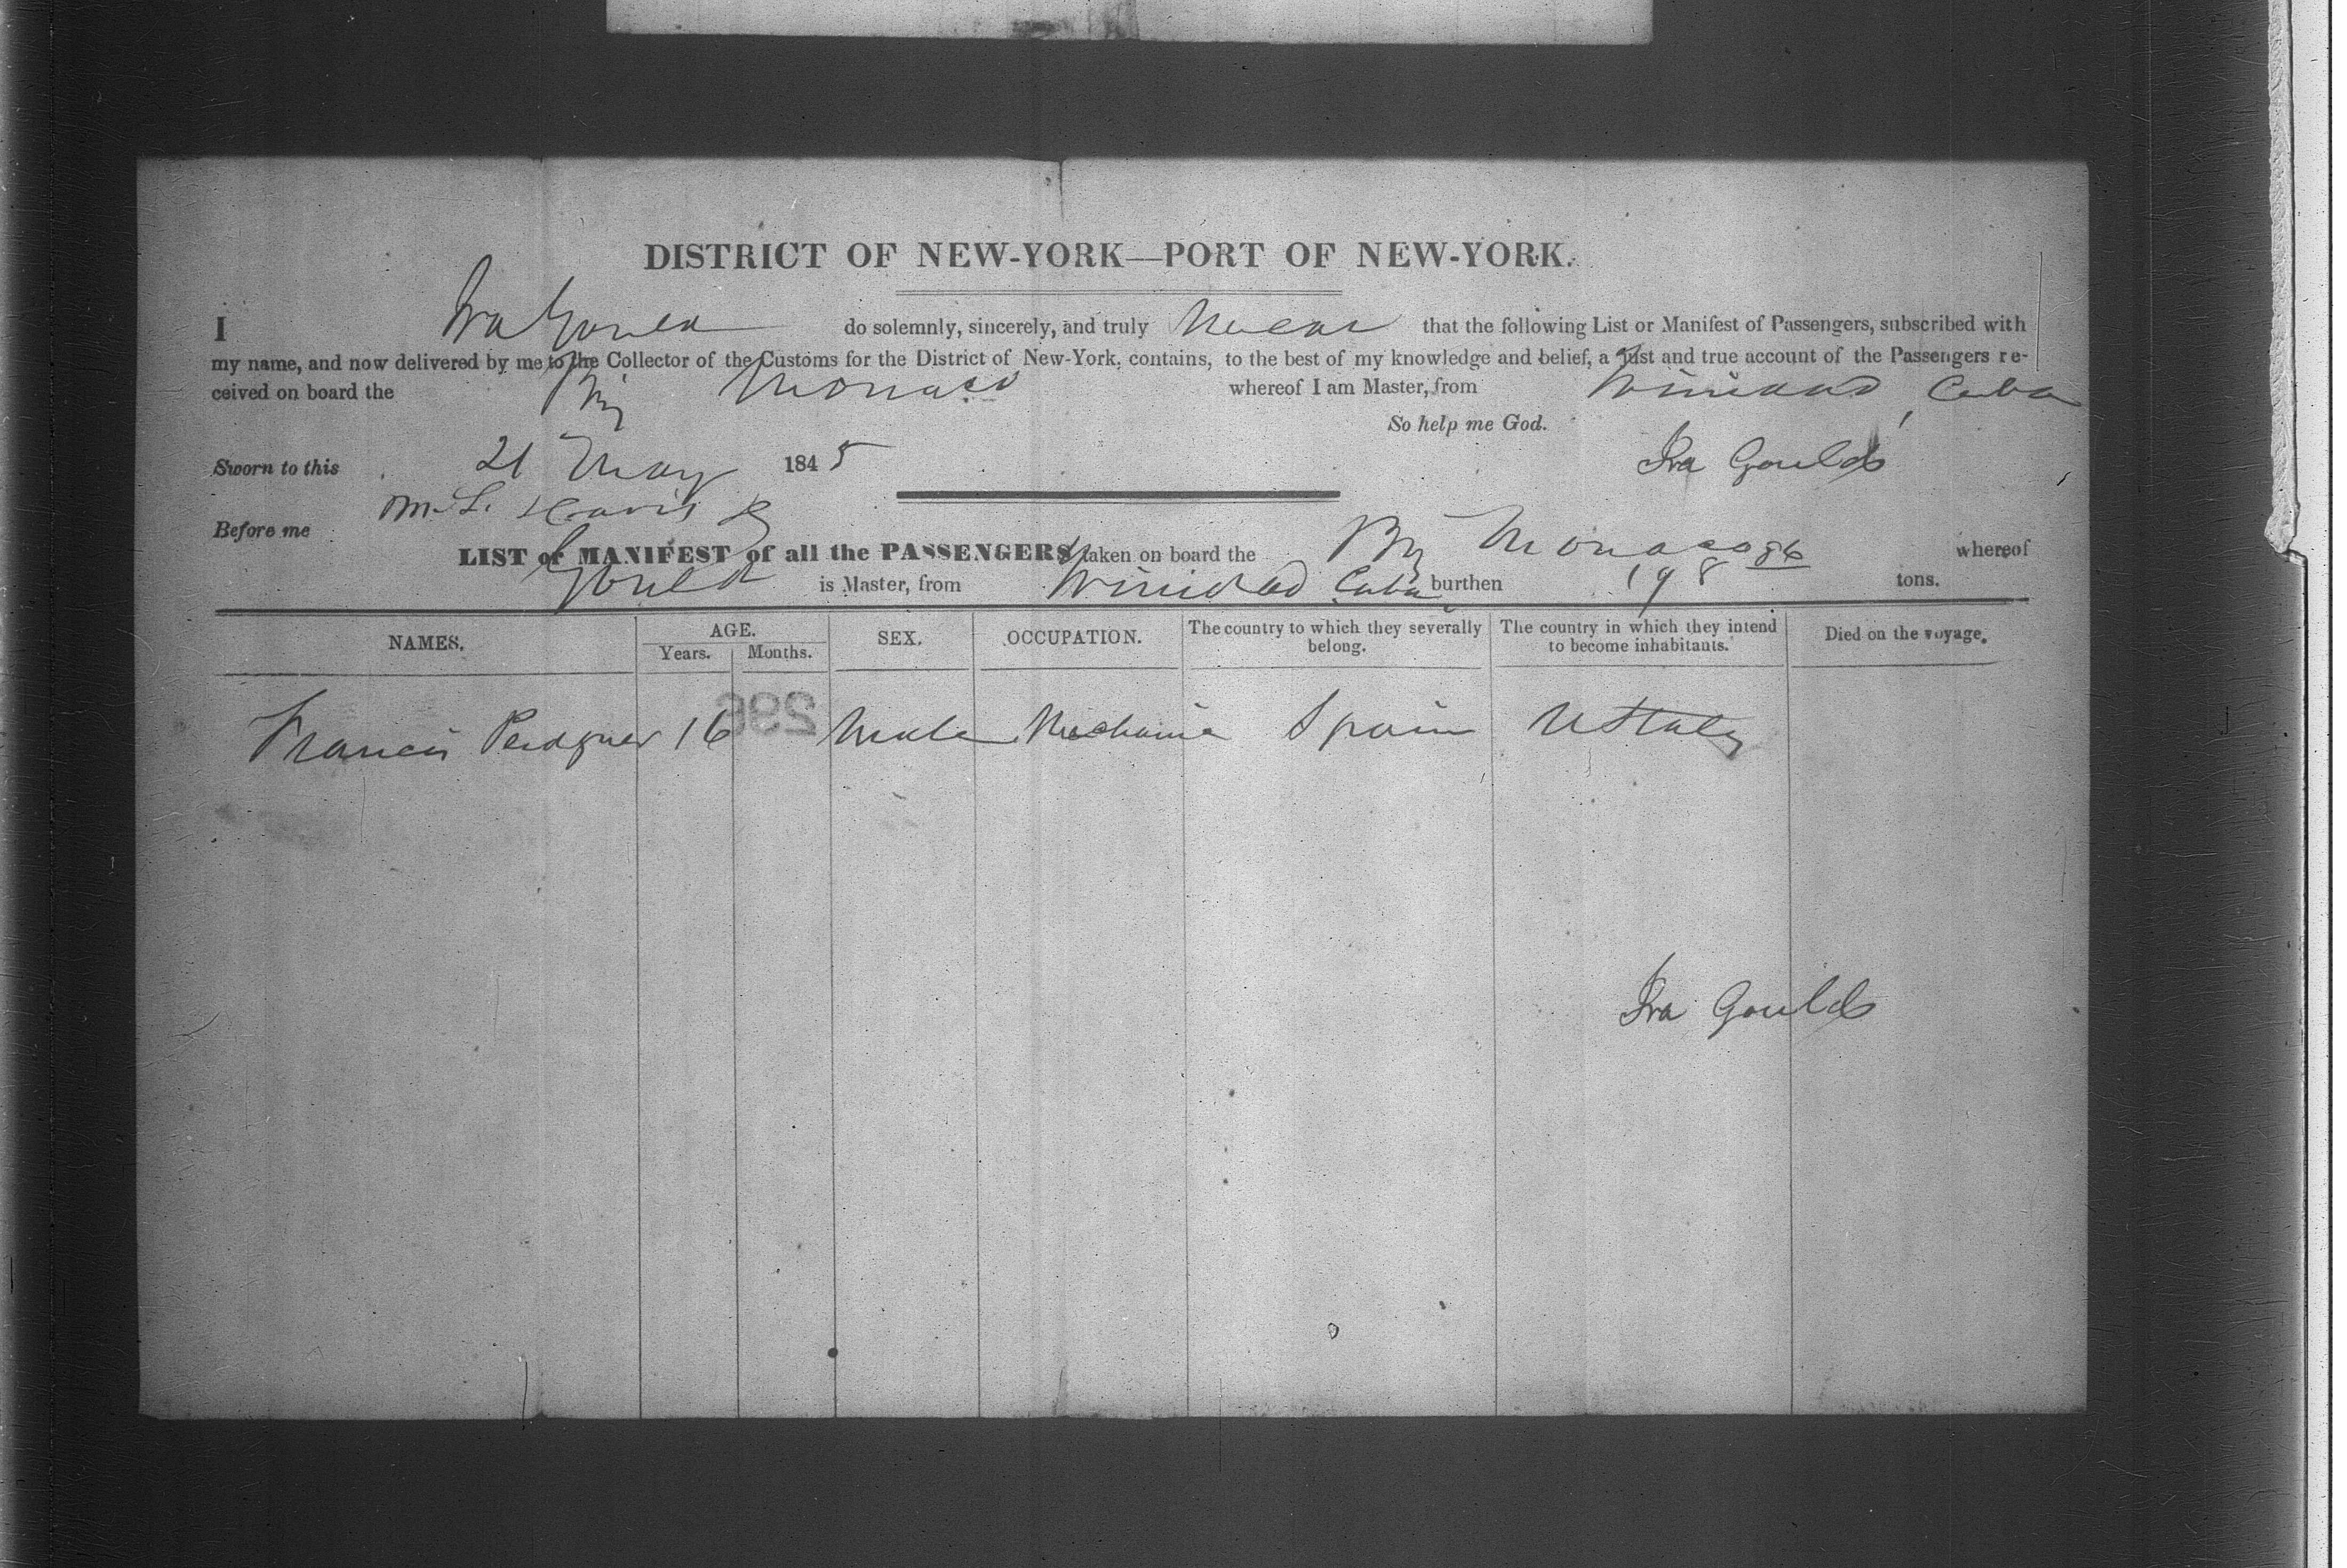 DISTRICT OF NEW-YORK—PORT OF NEW-YORK.
I Ira Gould do solemnly, sincerely, and truly swear that the following List or Manifest of Passengers, subscribed with
my name, and now delivered by me to the Collector of the Customs for the District of New-York, contains, to the best of my knowledge and belief, a just and true account of the Passengers re-
ceived on board the Brig Monaco whereof I am Master, from Trinidad, Cuba
So help me God.
Sworn to this 21 May 1845 Ira Gould
Before me M. L. Davis
LIST or MANIFEST of all the PASSENGERS taken on board the Brig Monaco whereof
Gould is Master, from Trinidad Cuba burthen 198 86 tons.
NAMES. AGE. Years. Months. SEX. OCCUPATION. The country to which they severally belong. The country in which they intend to become inhabitants. Died on the voyage.
296
Francis 16 Male Mechanic Spain U States
Ira Gould